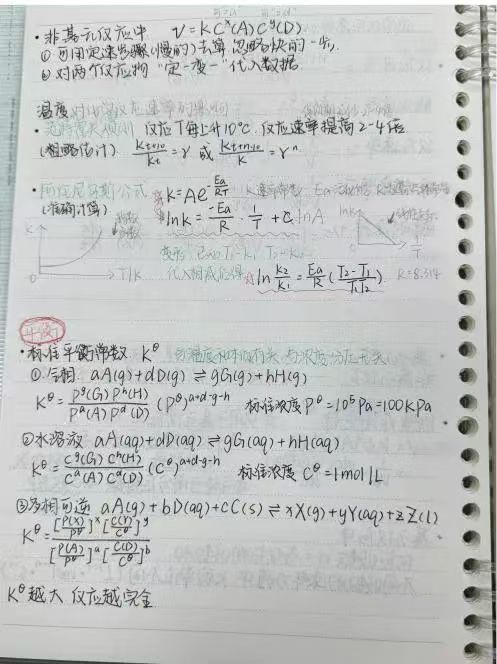 ·非基元反应中 v=kCˣ(A)Cʸ(D)
①可用定速步骤(慢的)去算,忽略快的一步.
②对两个反应物"定一变一"代入数据.
温度对化学反应速率的影响
反应T每上升10℃,反应速率提高2-4倍
(粗略估计) k_{t+10}/k_t=γ 或 k_{t+n·10}/k_t=γⁿ
·阿伦尼乌斯公式 k=Ae^{-Ea/RT} k:速率常数
(准确计算) lnk=-Ea/R·1/T+C lnA
k
0 T/K
lnk
0 1/T
变形:已知T₁-k₁ T₂-k₂
代入相减后得 ln k₂/k₁=Ea/R(T₂-T₁/T₁T₂) R=8.314
平衡
·标准平衡常数 K^θ 与温度和本性有关,与浓度、分压无关
①气相 aA(g)+dD(g)⇌gG(g)+hH(g)
K^θ=P^g(G)P^h(H)/P^a(A)P^d(D) (P^θ)^{a+d-g-h} 标准浓度P^θ=10⁵Pa=100KPa
②水溶液 aA(aq)+dD(aq)⇌gG(aq)+hH(aq)
K^θ=C^g(G)C^h(H)/C^a(A)C^d(D) (C^θ)^{a+d-g-h} 标准浓度 C^θ=1mol/L
③多相可逆 aA(g)+bD(aq)+cC(s)⇌xX(g)+yY(aq)+zZ(l)
K^θ=[P(X)/P^θ]^x[C(Y)/C^θ]^y/[P(A)/P^θ]^a[C(D)/C^θ]^b
K^θ越大 反应越完全